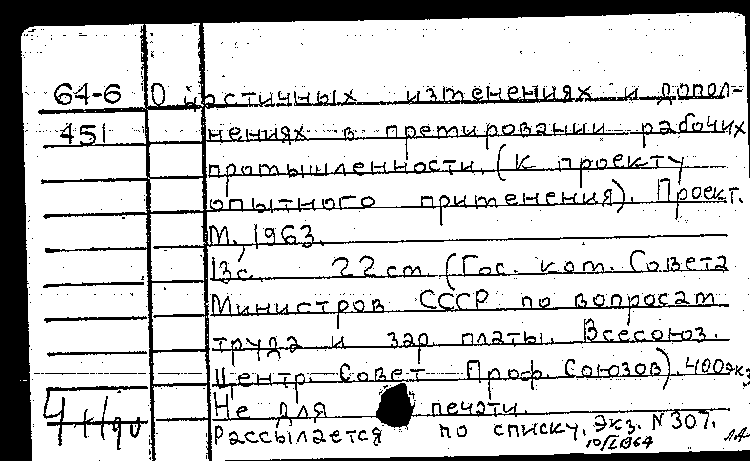 64-6 О частичных изменениях и допол-
451 нениях в премировании рабочих
промышленности. (К проекту
опытного применения). Проект.
М., 1963.
13с. 22 см. (Гос. ком. Совета
Министров СССР по вопросам
труда и зар. платы. Всесоюз.
Центр. Совет Проф. Союзов). 400 экз
Не для печати.
Рассылается по списку. Экз. № 307.